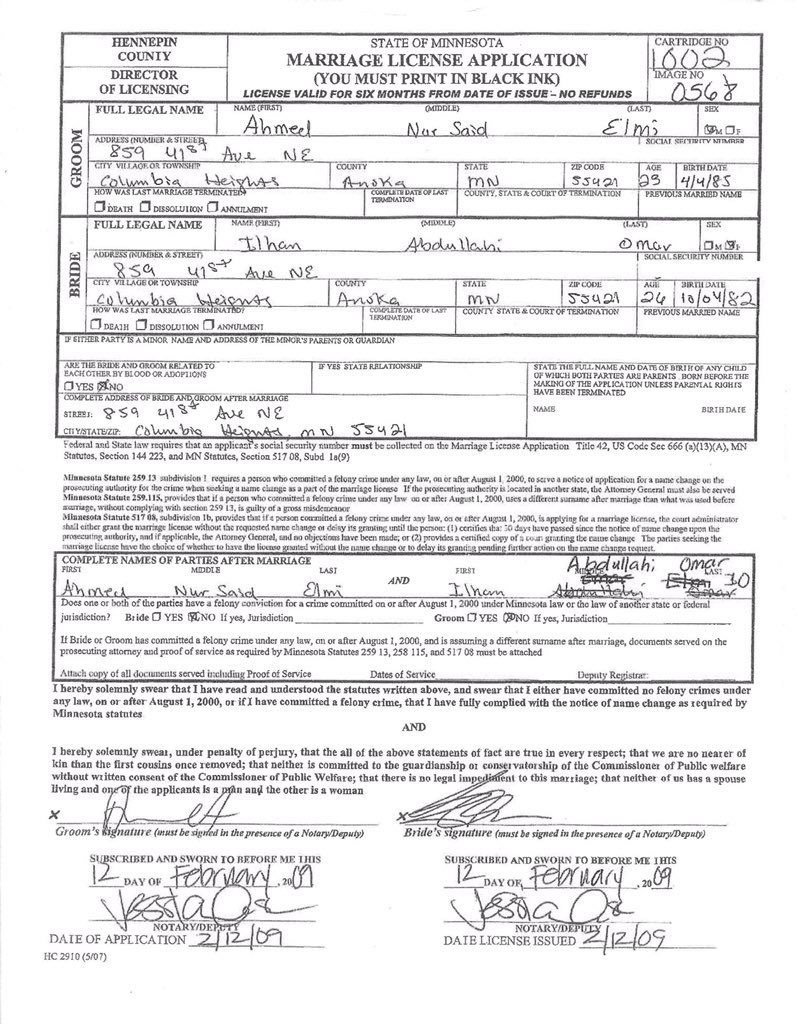 HENNEPIN COUNTY
DIRECTOR OF LICENSING
STATE OF MINNESOTA
MARRIAGE LICENSE APPLICATION
(YOU MUST PRINT IN BLACK INK)
LICENSE VALID FOR SIX MONTHS FROM DATE OF ISSUE – NO REFUNDS
CARTRIDGE NO
1002
IMAGE NO
0568
GROOM
FULL LEGAL NAME NAME (FIRST) (MIDDLE) (LAST) SEX
Ahmed Nur Said Elmi M F
ADDRESS (NUMBER & STREET) SOCIAL SECURITY NUMBER
859 41st Ave NE
CITY VILLAGE OR TOWNSHIP COUNTY STATE ZIP CODE AGE BIRTH DATE
Columbia Heights Anoka MN 55421 23 4/4/85
HOW WAS LAST MARRIAGE TERMINATED? COMPLETE DATE OF LAST TERMINATION COUNTY, STATE & COURT OF TERMINATION PREVIOUS MARRIED NAME
DEATH DISSOLUTION ANNULMENT
BRIDE
FULL LEGAL NAME NAME (FIRST) (MIDDLE) (LAST) SEX
Ilhan Abdullahi Omar M F
ADDRESS (NUMBER & STREET) SOCIAL SECURITY NUMBER
859 41st Ave NE
CITY VILLAGE OR TOWNSHIP COUNTY STATE ZIP CODE AGE BIRTH DATE
Columbia Heights Anoka MN 55421 26 10/04/82
HOW WAS LAST MARRIAGE TERMINATED? COMPLETE DATE OF LAST TERMINATION COUNTY STATE & COURT OF TERMINATION PREVIOUS MARRIED NAME
DEATH DISSOLUTION ANNULMENT
IF EITHER PARTY IS A MINOR NAME AND ADDRESS OF THE MINOR'S PARENTS OR GUARDIAN
ARE THE BRIDE AND GROOM RELATED TO EACH OTHER BY BLOOD OR ADOPTIONS
YES NO
IF YES STATE RELATIONSHIP
STATE THE FULL NAME AND DATE OF BIRTH OF ANY CHILD
OF WHICH BOTH PARTIES ARE PARENTS BORN BEFORE THE
MAKING OF THE APPLICATION UNLESS PARENTAL RIGHTS
HAVE BEEN TERMINATED
NAME BIRTH DATE
COMPLETE ADDRESS OF BRIDE AND GROOM AFTER MARRIAGE
STREET: 859 41st Ave NE
CITY/STATE/ZIP: Columbia Heights, MN 55421
Federal and State law requires that an applicant's social security number must be collected on the Marriage License Application Title 42, US Code Sec 666 (a)(13)(A), MN
Statutes, Section 144 223, and MN Statutes, Section 517 08, Subd 1a(9)
Minnesota Statute 259.13 subdivision 1 requires a person who committed a felony crime under any law, on or after August 1, 2000, to serve a notice of application for a name change on the
prosecuting authority for the crime when seeking a name change as a part of the marriage license If the prosecuting authority is located in another state, the Attorney General must also be served
Minnesota Statute 259.115, provides that if a person who committed a felony crime under any law on or after August 1, 2000, uses a different surname after marriage than what was used before
marriage, without complying with section 259 13, is guilty of a gross misdemeanor
Minnesota Statute 517 08, subdivision 1b, provides that if a person committed a felony crime under any law, on or after August 1, 2000, is applying for a marriage license, the court administrator
shall either grant the marriage license without the requested name change or delay its granting until the person: (1) certifies that 30 days have passed since the notice of name change upon the
prosecuting authority, and if applicable, the Attorney General, and no objections have been made; or (2) provides a certified copy of a court granting the name change The parties seeking the
marriage license have the choice of whether to have the license granted without the name change or to delay its granting pending further action on the name change request.
COMPLETE NAMES OF PARTIES AFTER MARRIAGE Abdullahi Omar
FIRST MIDDLE LAST FIRST MIDDLE LAST
Ahmed Nur Said Elmi AND Ilhan
Does one or both of the parties have a felony conviction for a crime committed on or after August 1, 2000 under Minnesota law or the law of another state or federal
jurisdiction? Bride YES NO If yes, Jurisdiction Groom YES NO If yes, Jurisdiction
If Bride or Groom has committed a felony crime under any law, on or after August 1, 2000, and is assuming a different surname after marriage, documents served on the
prosecuting attorney and proof of service as required by Minnesota Statutes 259 13, 258 115, and 517 08 must be attached
Attach copy of all documents served including Proof of Service Dates of Service Deputy Registrar:
I hereby solemnly swear that I have read and understood the statutes written above, and swear that I either have committed no felony crimes under
any law, on or after August 1, 2000, or if I have committed a felony crime, that I have fully complied with the notice of name change as required by
Minnesota statutes
AND
I hereby solemnly swear, under penalty of perjury, that the all of the above statements of fact are true in every respect; that we are no nearer of
kin than the first cousins once removed; that neither is committed to the guardianship or conservatorship of the Commissioner of Public welfare
without written consent of the Commissioner of Public Welfare; that there is no legal impediment to this marriage; that neither of us has a spouse
living and one of the applicants is a man and the other is a woman
X X
Groom's signature (must be signed in the presence of a Notary/Deputy) Bride's signature (must be signed in the presence of a Notary/Deputy)
SUBSCRIBED AND SWORN TO BEFORE ME THIS SUBSCRIBED AND SWORN TO BEFORE ME THIS
12 DAY OF February, 2009 12 DAY OF February, 2009
NOTARY/DEPUTY NOTARY/DEPUTY
DATE OF APPLICATION 2/12/09 DATE LICENSE ISSUED 2/12/09
HC 2910 (5/07)